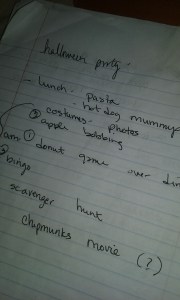 halloween party:
- lunch - pasta
- hot dog mummy
③ costumes - photos
apple bobbing
am ① donut game over din
② bingo
scavenger hunt
chipmunks movie (?)